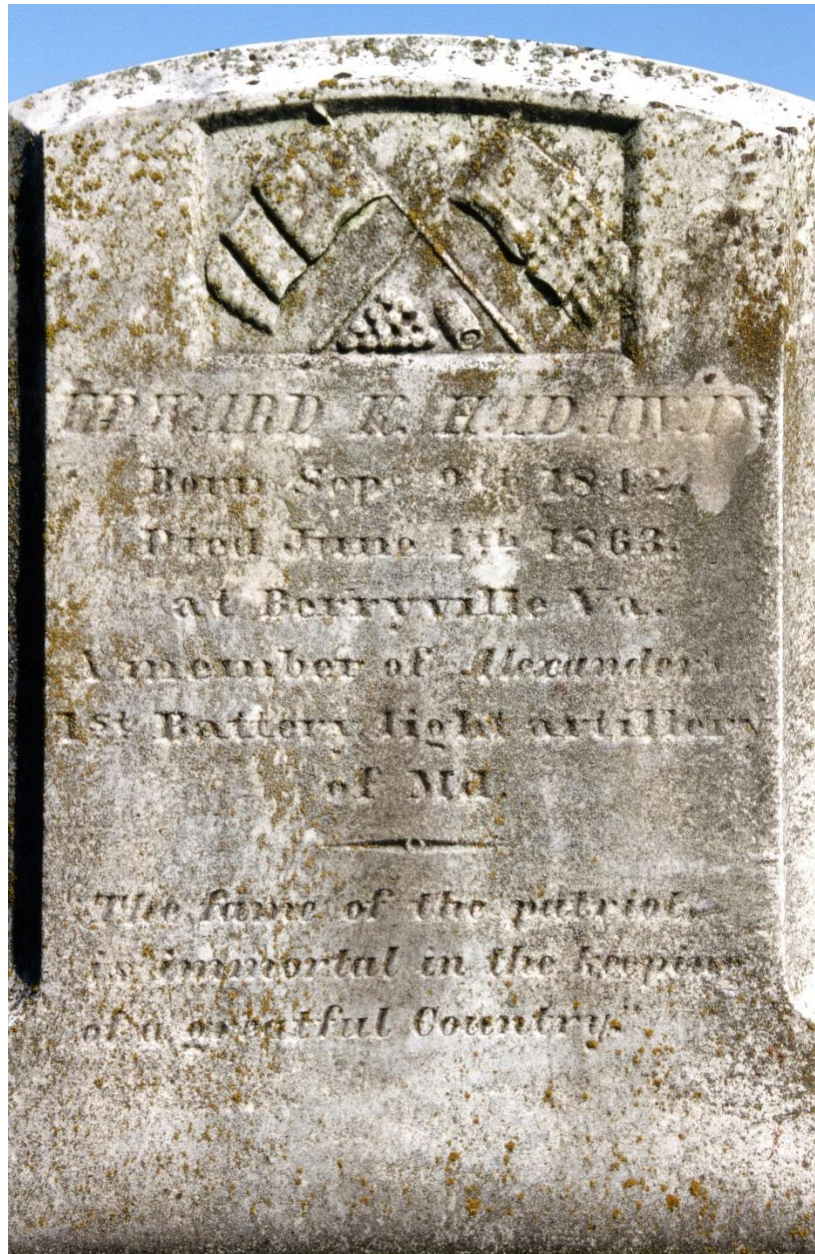 EDWARD K. HADAWAY.
Born Sept 9th 1842.
Died June 4th 1863.
at Berryville Va.
A member of Alexanders
1st Battery light artillery
of Md.
The fame of the patriot,
is immortal in the keeping
of a greatful Country."